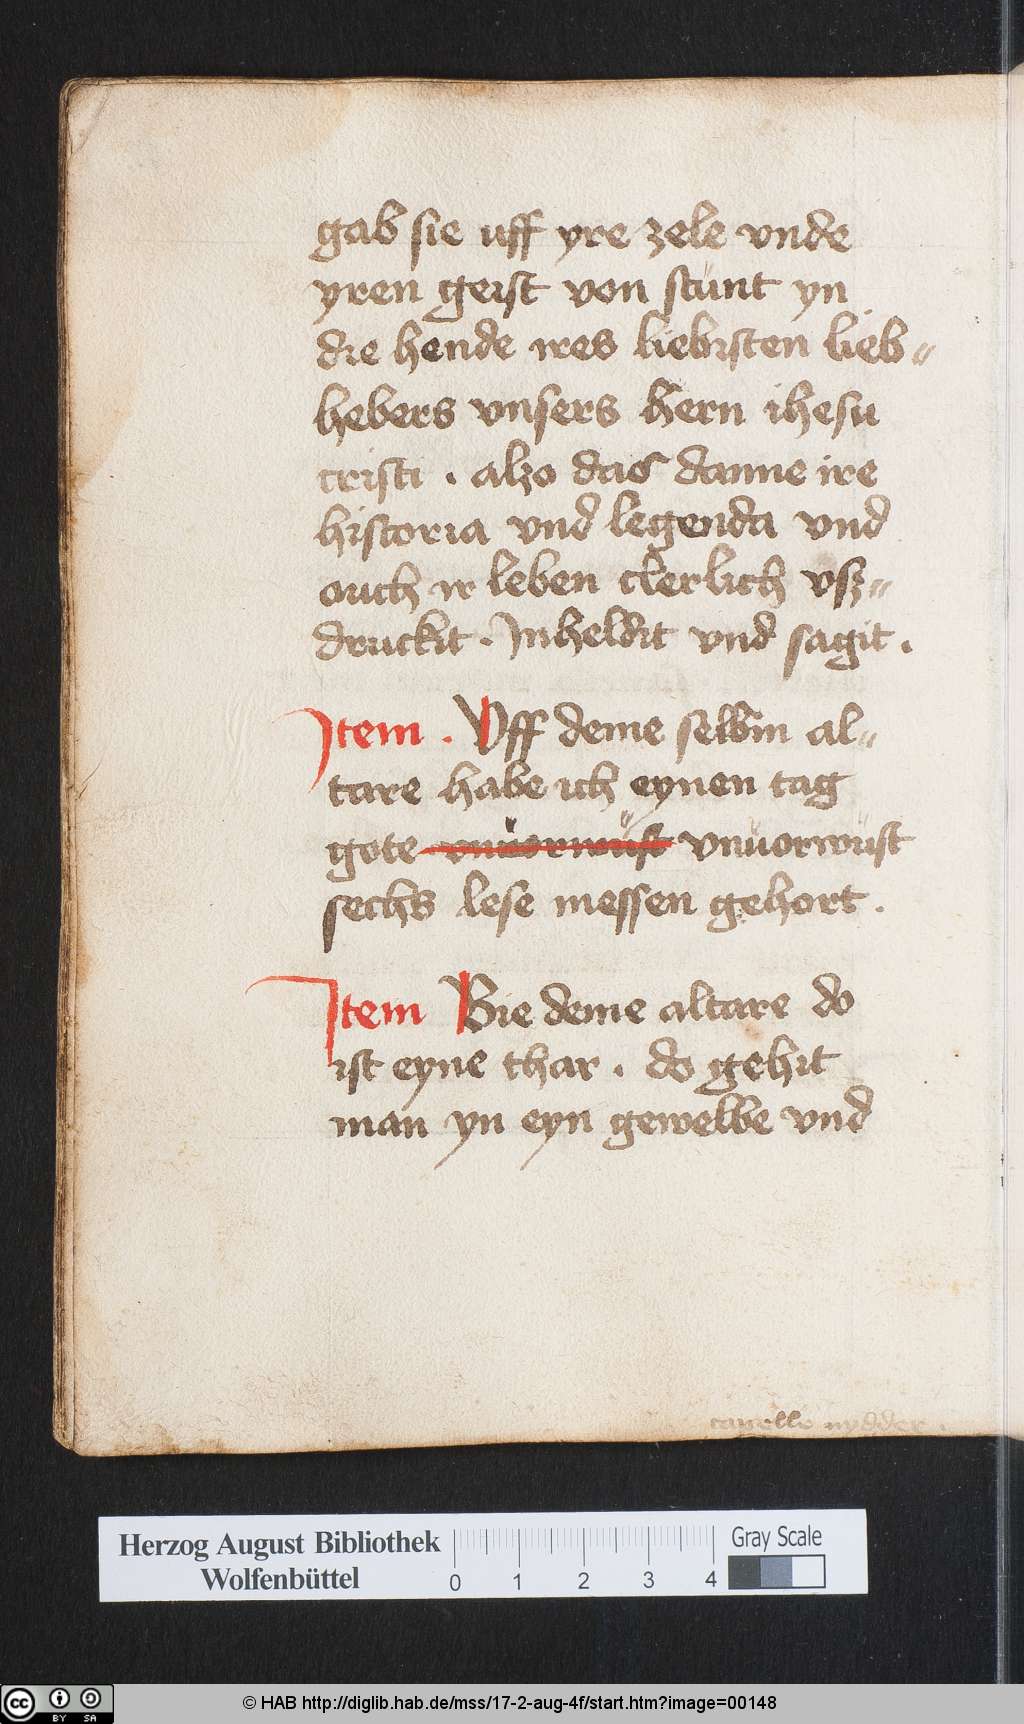 gab sie uff yre zele vnde
yren geist von stunt yn
die hende ires liebisten lieb=
hebers vnsers hern ihesu
cristi . alzo das danne ire
historia vnd legenda vnd
ouch ir leben clerlich vsz=
druckit . Inheldit vnd sagit .
Item . Vff deme selbin al=
tare habe ich eynen tag
gote vnuorwust vnuorwust
sechs lese messen gehort .
Item Bie deme altare do
ist eyne thar . do gehit
man yn eyn gewelbe vnd
capelle nydder .
Herzog August Bibliothek
Wolfenbüttel
0 1 2 3 4
Gray Scale
cc BY SA
© HAB http://diglib.hab.de/mss/17-2-aug-4f/start.htm?image=00148